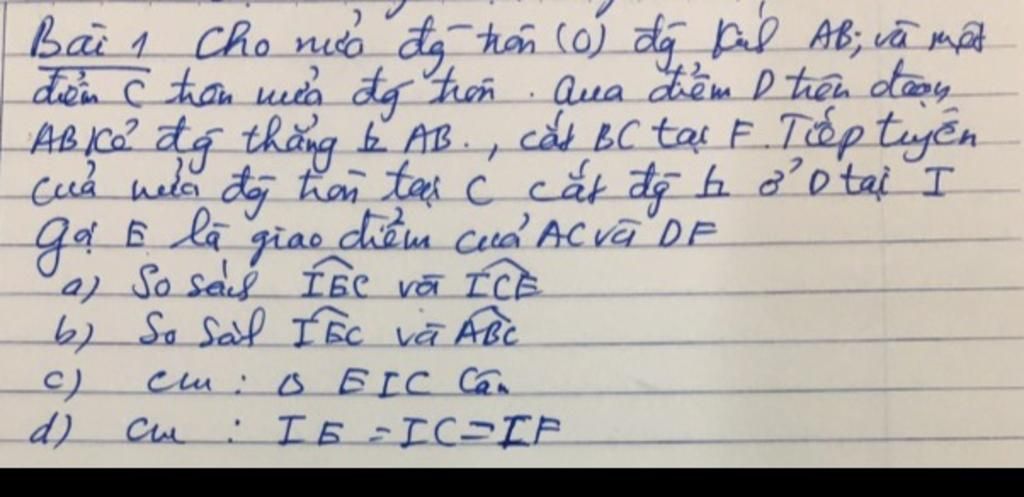 Bài 1 Cho nửa đg tròn (O) đg kính AB; và một
điểm C trên nửa đg tròn. Qua điểm D trên đoạn
AB kẻ đg thẳng ⊥ AB., cắt BC tại F. Tiếp tuyến
của nửa đg tròn tại C cắt đg ⊥ ở D tại I
Gọi E là giao điểm của AC và DF
a) So sánh \widehat{IEC} với \widehat{ICE}
b) So sánh \widehat{IEC} và \widehat{ABC}
c) cm: Δ EIC cân
d) cm : IE = IC = IF